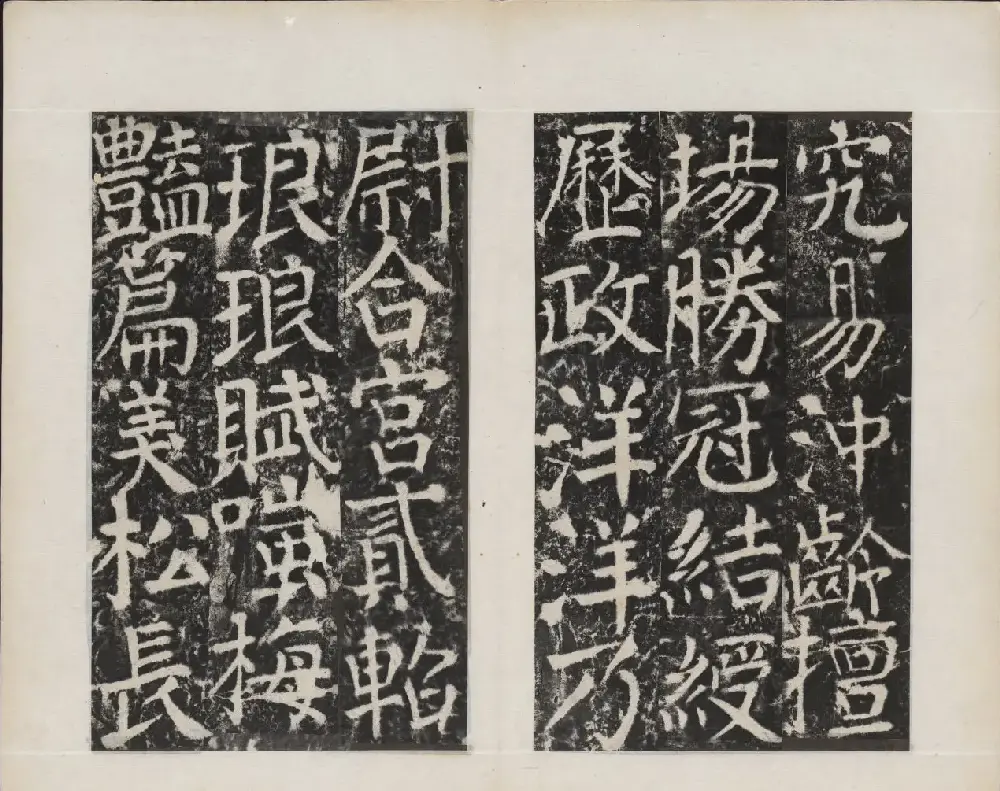 究易沖齡擅
場勝冠結綬
歷政洋洋乃
尉合宮貳
琅琅賦嗤梅
豔篇美松長